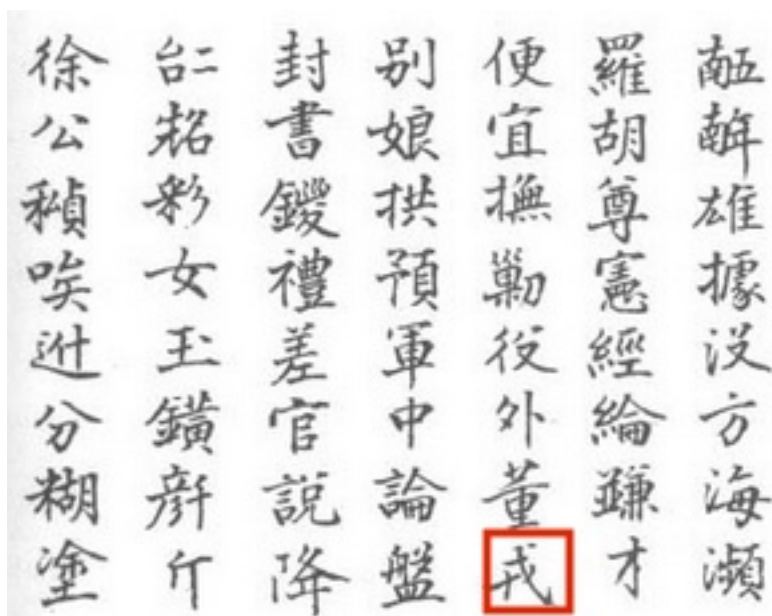 𠄼𢆥雄據没方海瀕
羅胡尊憲經綸才
便宜撫勦役外董戎
别娘拱預軍中論盤
封書鑁禮差官説降
𠄩彩女玉鐄𠦳斤
徐公𥢆唉𨑮分糊塗